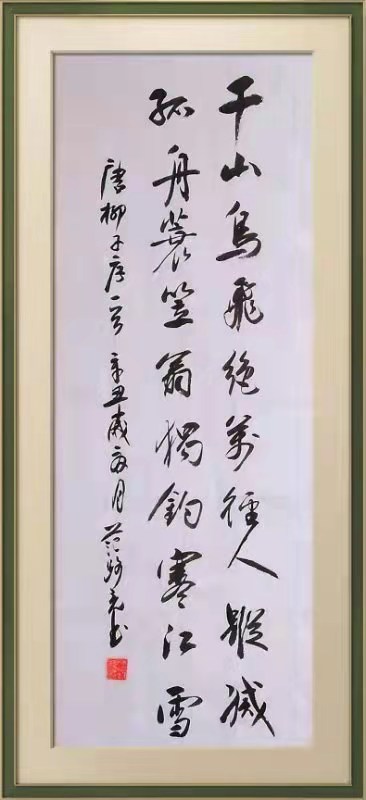 千山鳥飛絶萬徑人蹤滅
孤舟蓑笠翁獨釣寒江雪
唐柳子厚一首 辛丑歲 月 范 光書